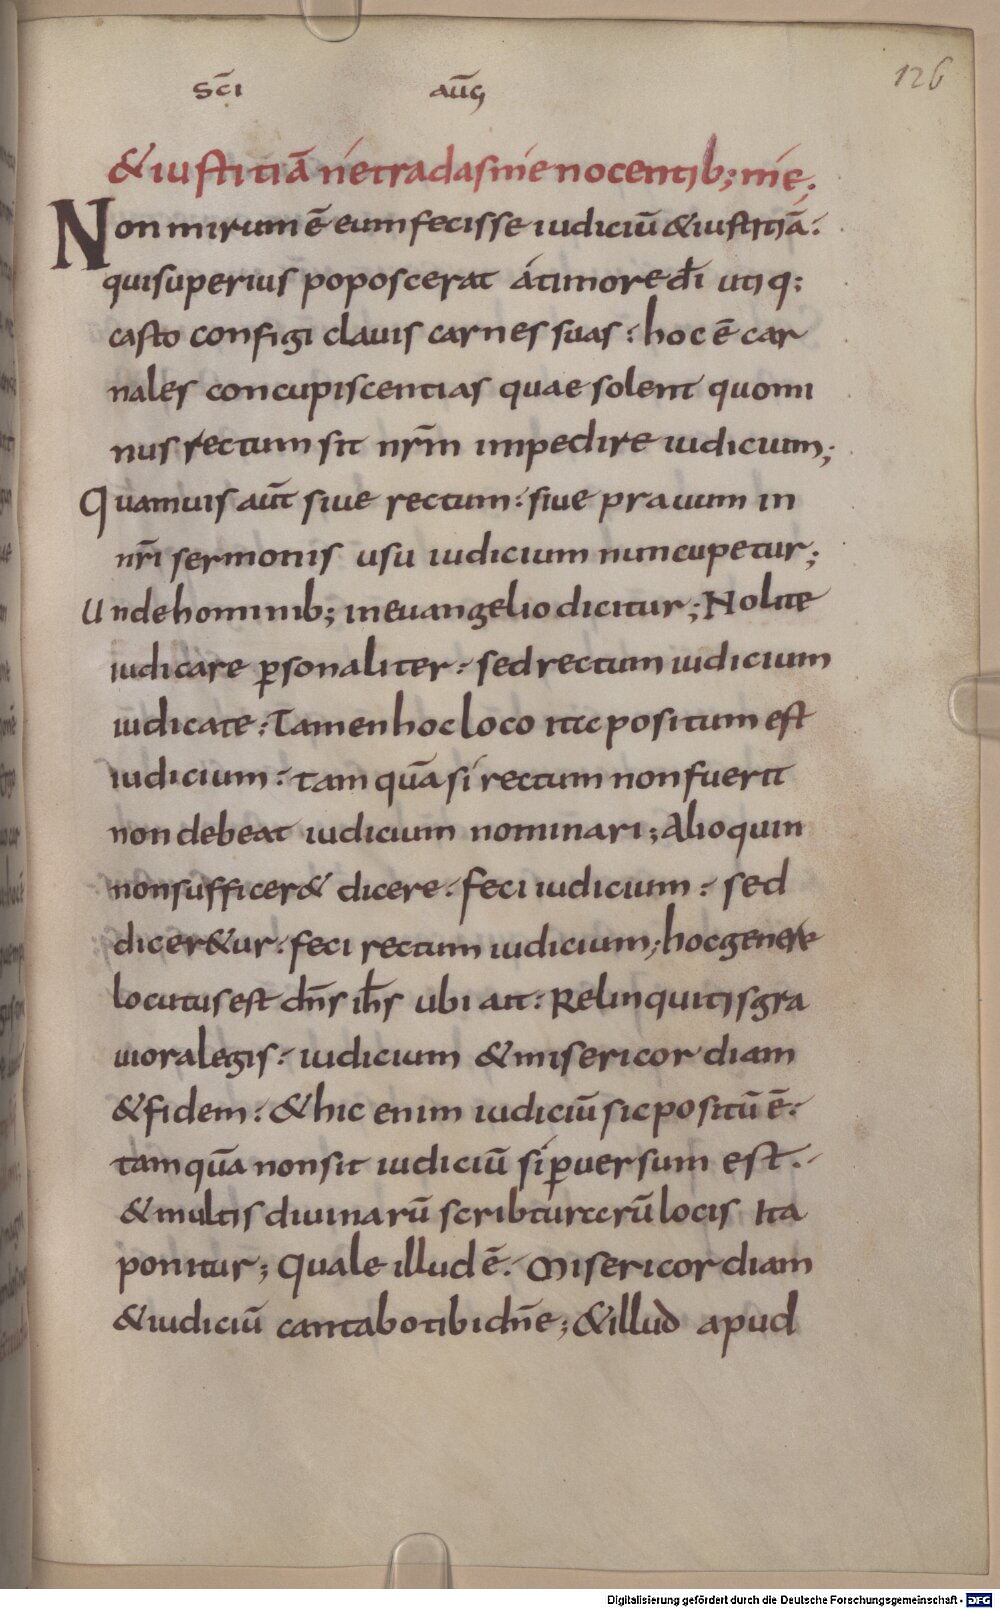 sc̄i auḡ
126
& iustitiā ne tradas me nocentib; me;
Non mirum ē eum fecisse iudiciū & iustitiā:
qui superius poposcerat a timore dī utiq;
casto configi clauis carnes suas: hoc ē car
nales concupiscentias quae solent quomi
nus rectum sit nr̄m impedire iudicium;
Quamuis aūt siue rectum: siue prauum in
nr̄i sermonis usu iudicium nuncupetur;
Unde hominib; in euangelio dicitur; Nolite
iudicare ꝑsonaliter: sed rectum iudicium
iudicate: Tamen hoc loco ita positum est
iudicium: tam quā si rectum non fuerit
non debeat iudicium nominari; Alioquin
non sufficer& dicere: feci iudicium: sed
dicer&ur: feci rectum iudicium; hoc genere
locutus est dn̄s ih̄s ubi ait: Relinquitis gra
uiora legis: iudicium & misericordiam
& fidem: & hic enim iudiciū sic positū ē:
tam quā non sit iudiciū si ꝑuersum est.
& multis diuinarū scribturarū locis Ita
ponitur; Quale illud ē. Misericordiam
& iudiciū cantabo tibi dn̄e; & illud apud
Digitalisierung gefördert durch die Deutsche Forschungsgemeinschaft - DFG